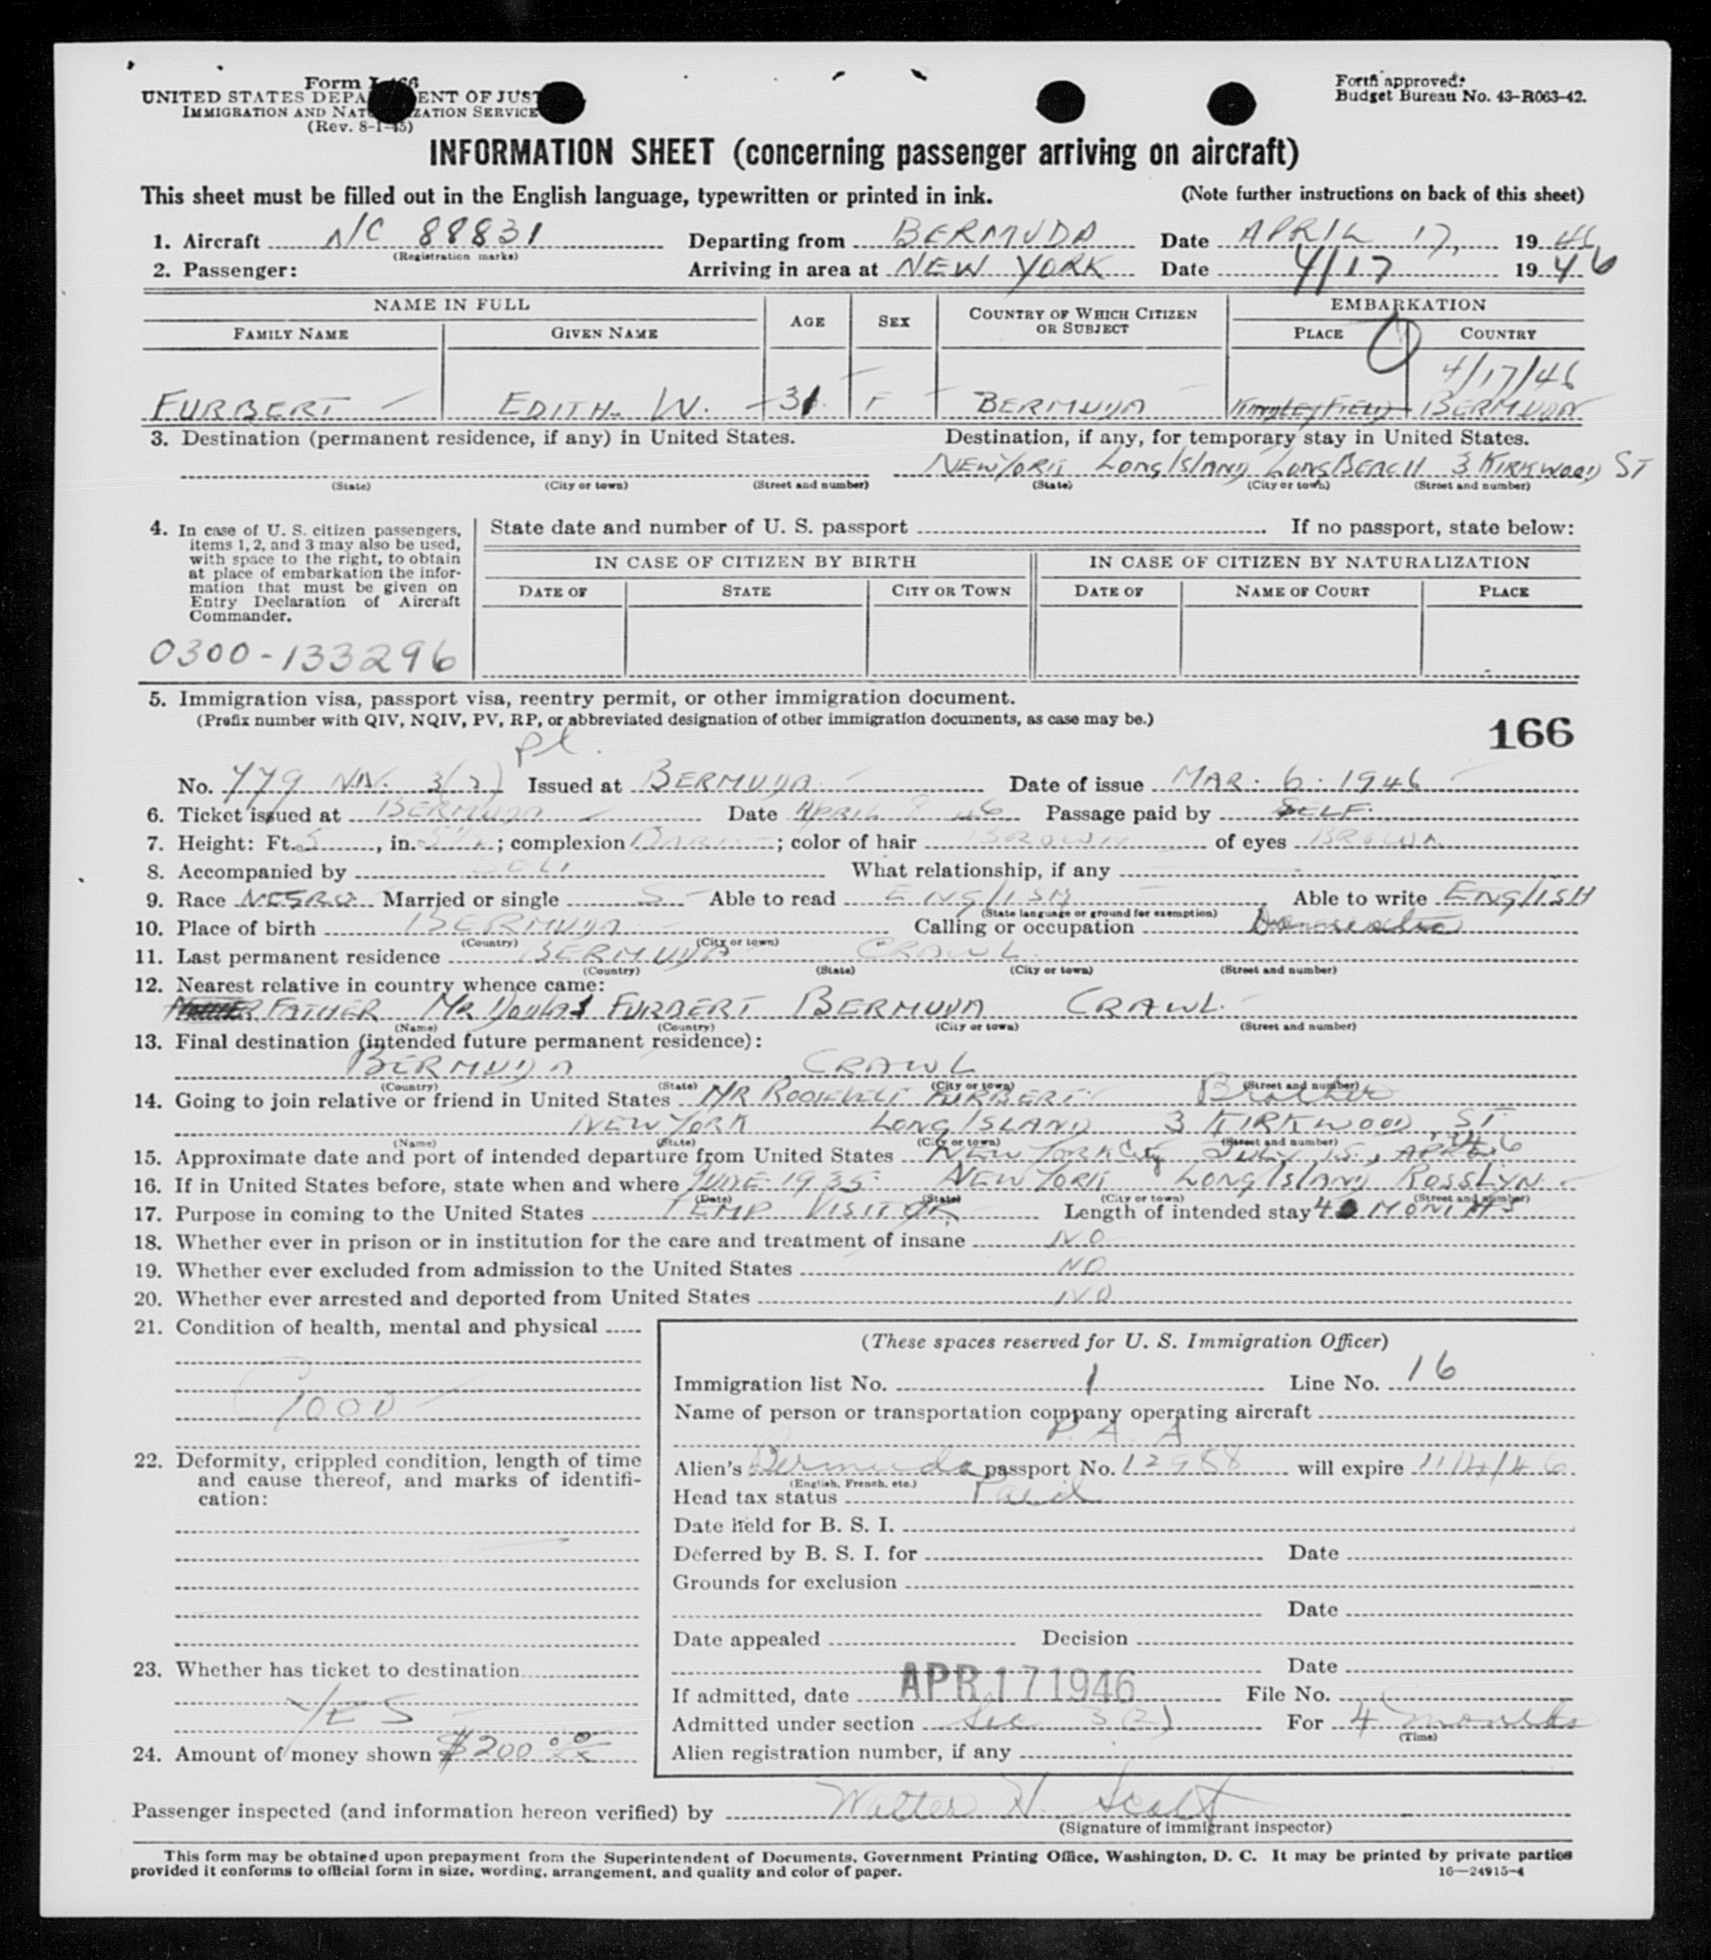 Form I-466
UNITED STATES DEPARTMENT OF JUSTICE
IMMIGRATION AND NATURALIZATION SERVICE
(Rev. 8-1-45)
Form approved:
Budget Bureau No. 43-R063-42.
INFORMATION SHEET (concerning passenger arriving on aircraft)
This sheet must be filled out in the English language, typewritten or printed in ink. (Note further instructions on back of this sheet)
1. Aircraft NC 88831 Departing from BERMUDA Date APRIL 17, 1946
(Registration marks)
2. Passenger: Arriving in area at NEW YORK Date 4/17 1946
NAME IN FULL AGE SEX COUNTRY OF WHICH CITIZEN OR SUBJECT EMBARKATION
FAMILY NAME GIVEN NAME PLACE COUNTRY
4/17/46
FURBERT EDITH W. 31 F BERMUDA Kindley Field BERMUDA
3. Destination (permanent residence, if any) in United States. Destination, if any, for temporary stay in United States.
NEW YORK LONG ISLAND LONG BEACH 3 KIRKWOOD ST
(State) (City or town) (Street and number) (State) (City or town) (Street and number)
4. In case of U. S. citizen passengers, items 1, 2, and 3 may also be used, with space to the right, to obtain at place of embarkation the information that must be given on Entry Declaration of Aircraft Commander.
State date and number of U. S. passport If no passport, state below:
IN CASE OF CITIZEN BY BIRTH IN CASE OF CITIZEN BY NATURALIZATION
DATE OF STATE CITY OR TOWN DATE OF NAME OF COURT PLACE
0300-133296
5. Immigration visa, passport visa, reentry permit, or other immigration document.
(Prefix number with QIV, NQIV, PV, RP, or abbreviated designation of other immigration documents, as case may be.)
166
No. 779 NIV. 3(2) Issued at BERMUDA Date of issue MAR. 6. 1946
6. Ticket issued at BERMUDA Date APRIL 46 Passage paid by SELF.
7. Height: Ft. 5, in. ; complexion DARK; color of hair BROWN of eyes BROWN
8. Accompanied by What relationship, if any
9. Race NEGRO Married or single S Able to read ENGLISH Able to write ENGLISH
(State language or ground for exemption)
10. Place of birth BERMUDA Calling or occupation
(Country) (City or town)
11. Last permanent residence BERMUDA CRAWL
(Country) (State) (City or town) (Street and number)
12. Nearest relative in country whence came:
FATHER MR FURBERT BERMUDA CRAWL.
(Name) (Country) (City or town) (Street and number)
13. Final destination (intended future permanent residence):
BERMUDA CRAWL
(Country) (State) (City or town) (Street and number)
14. Going to join relative or friend in United States MR ROOSEVELT FURBERT Brother
NEW YORK LONG ISLAND 3 KIRKWOOD ST
(Name) (State) (City or town) (Street and number)
15. Approximate date and port of intended departure from United States NEW YORK City JULY 15,
16. If in United States before, state when and where JUNE 1935 NEW YORK LONG ISLAND ROSSLYN
(Date) (State) (City or town) (Street and number)
17. Purpose in coming to the United States TEMP VISITOR Length of intended stay 4 MONTHS
18. Whether ever in prison or in institution for the care and treatment of insane NO
19. Whether ever excluded from admission to the United States NO
20. Whether ever arrested and deported from United States NO
21. Condition of health, mental and physical
GOOD
22. Deformity, crippled condition, length of time and cause thereof, and marks of identification:
23. Whether has ticket to destination
YES
24. Amount of money shown $200
(These spaces reserved for U. S. Immigration Officer)
Immigration list No. 1 Line No. 16
Name of person or transportation company operating aircraft
P. A. A
Alien's Bermuda passport No. 12988 will expire 11/14/46
(English, French, etc.)
Head tax status Paid
Date held for B. S. I.
Deferred by B. S. I. for Date
Grounds for exclusion
Date
Date appealed Decision
Date
If admitted, date APR 17 1946 File No.
Admitted under section Sec 3(2) For 4 months
(Time)
Alien registration number, if any
Passenger inspected (and information hereon verified) by Walter H. Scott
(Signature of immigrant inspector)
This form may be obtained upon prepayment from the Superintendent of Documents, Government Printing Office, Washington, D. C. It may be printed by private parties
provided it conforms to official form in size, wording, arrangement, and quality and color of paper.
16—24915-4